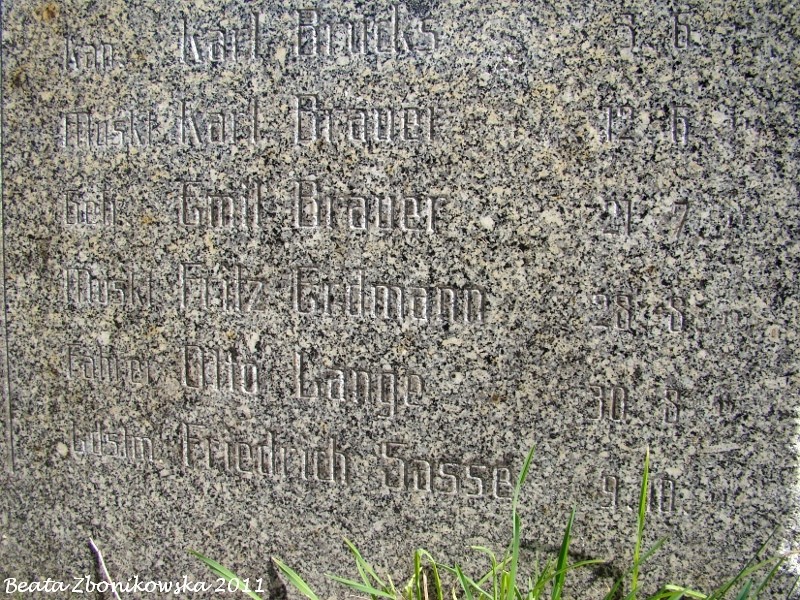 Kan. Karl Brucks 5. 6.
Muskt Karl Brauer 12. 6. "
Gefr. Emil Brauer 21. 7. "
Muskt Fritz Erdmann 28. 8. "
Fahrer Otto Lange 30. 8. "
Ldstm Friedrich Sasse 9. 10. "
Beata Zbonikowska 2011